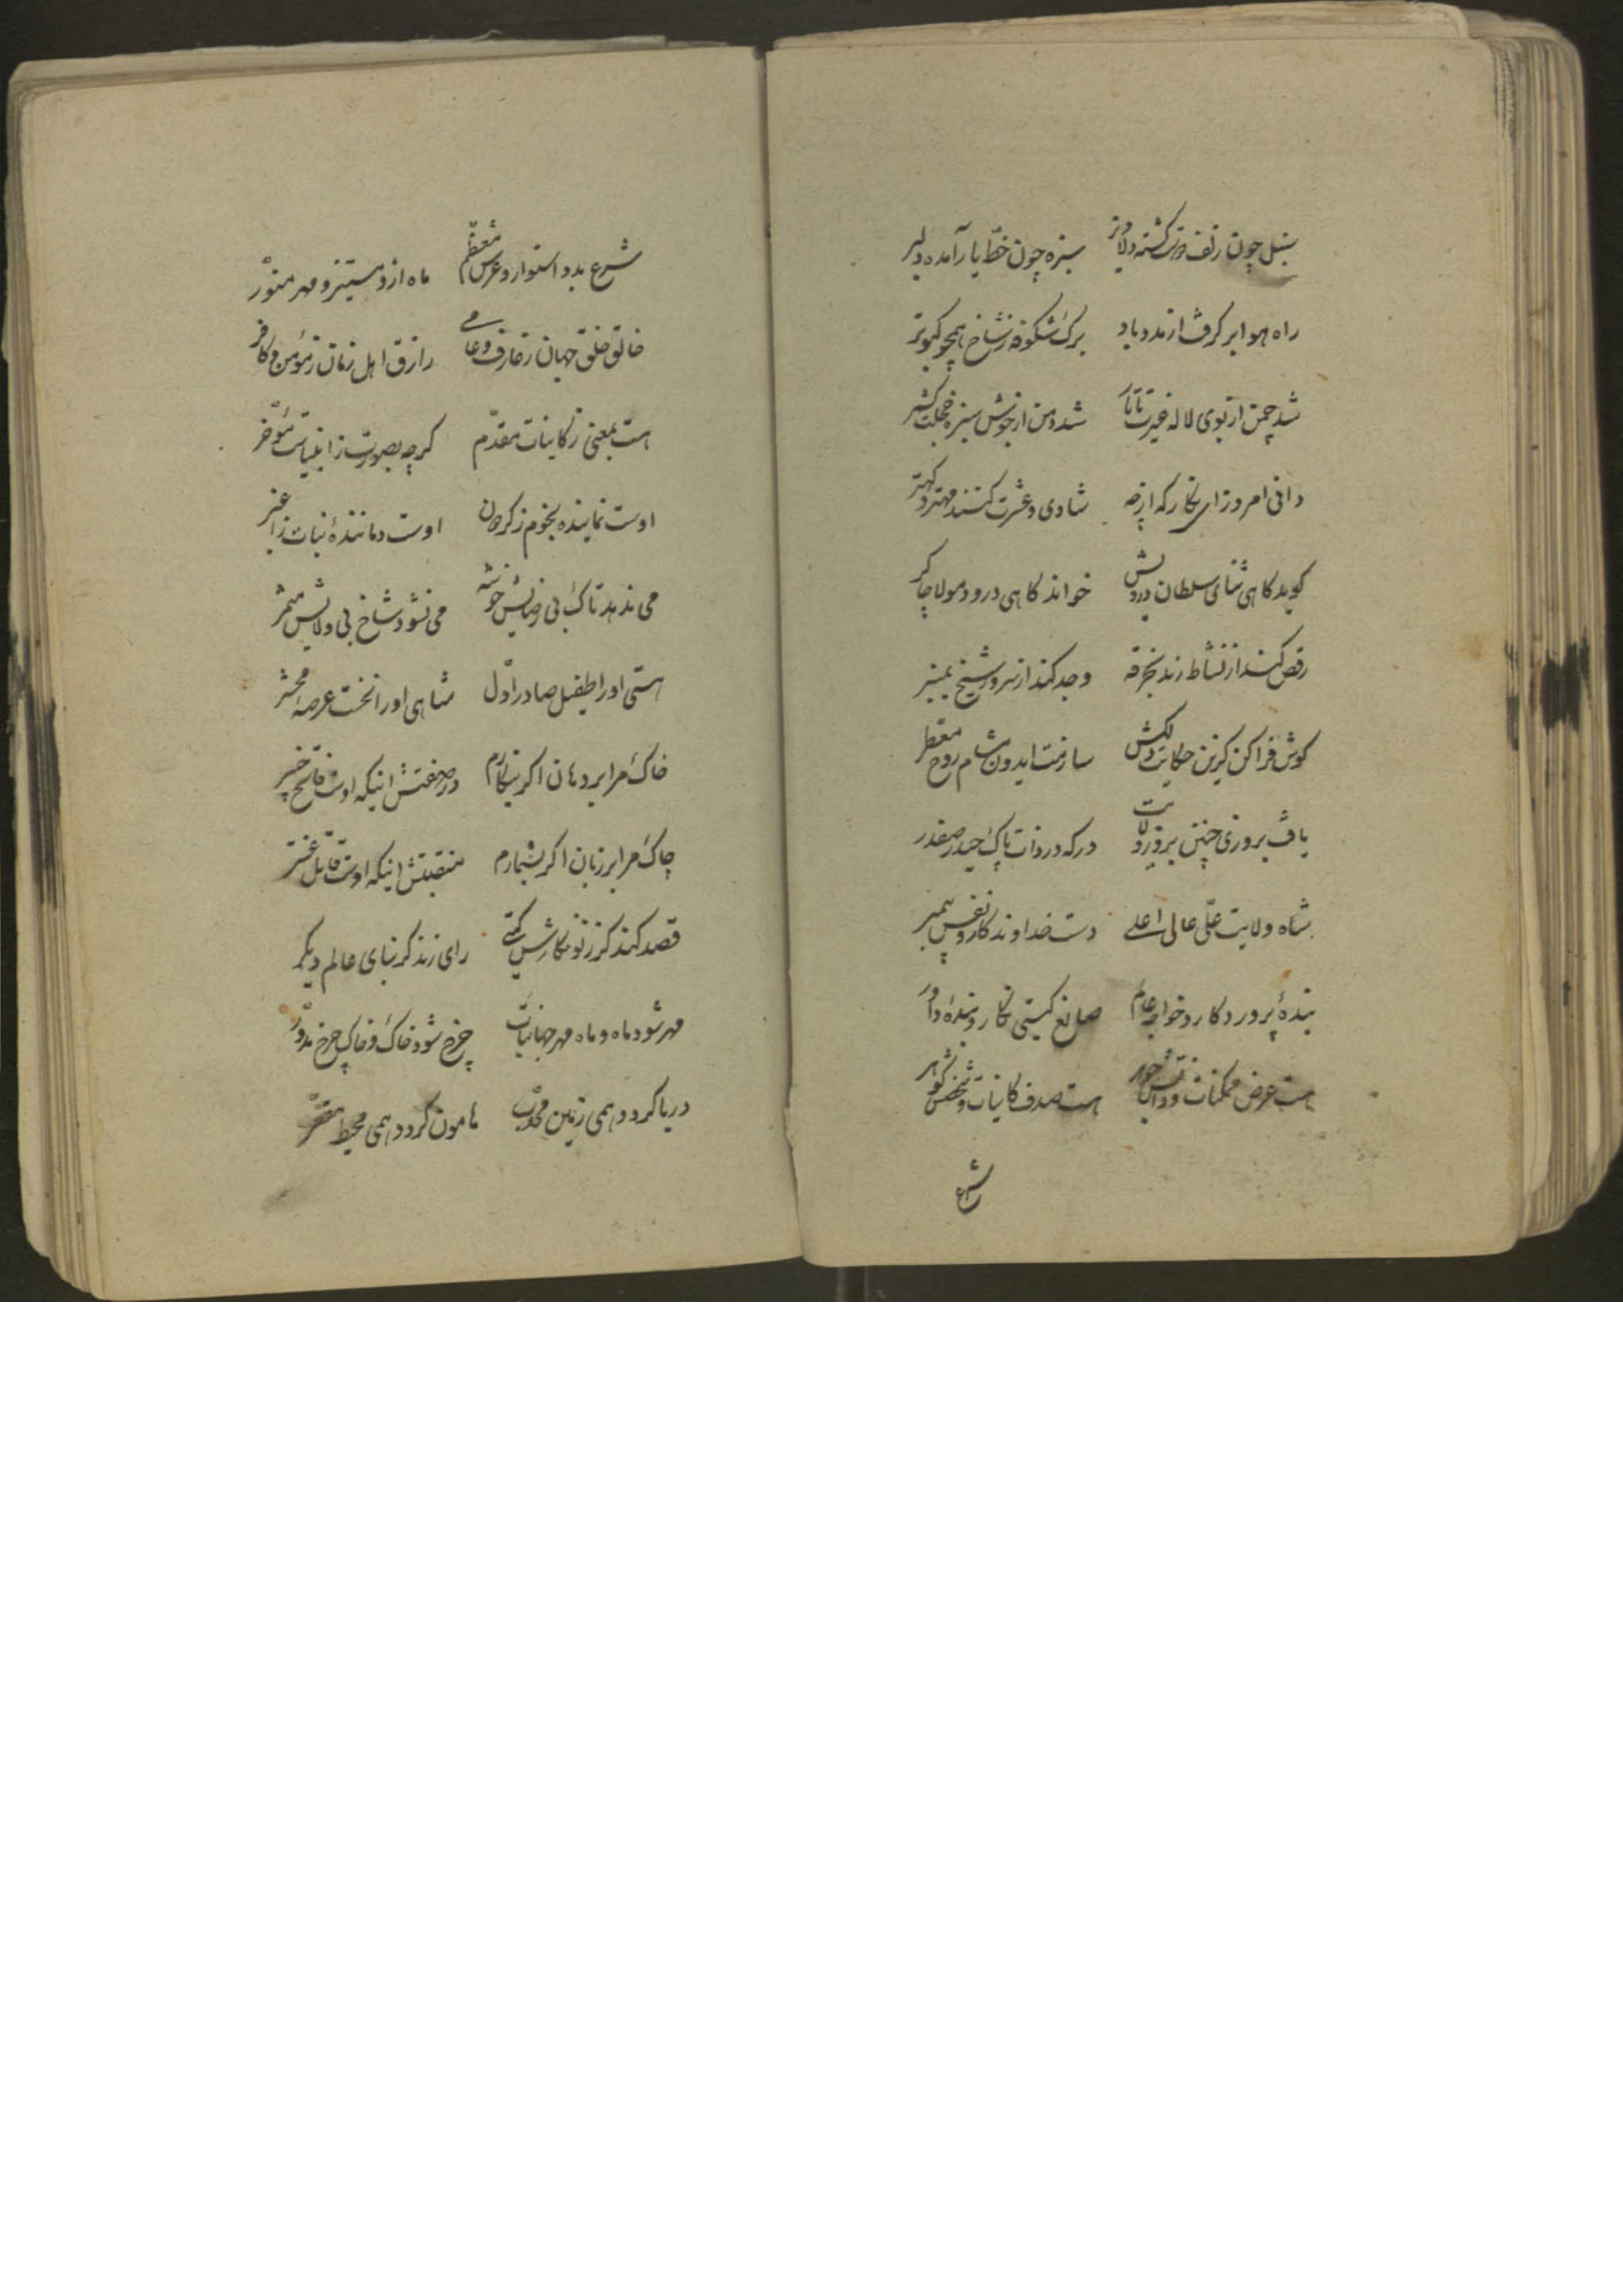 سنبل چون زلف ترک گشته دلاویز سبزه چون خطّ یار آمده دلبر
راه هوا ابر گرفت از مدد باد برک شکوفه ز شاخ همچو کبوتر
شد چمن از بوی لاله غیرت تاتار شد دمن از جوش سبزه خجلت کشمر
دانی امروز ای نکار که از چه شادی و عشرت کنند مهتر و کهتر
کوید کاهی ثنای سلطان درویش خواند کاهی درود مولا چاکر
رقص کند از نشاط رند بخرقه وجد کند از سرور شیخ بمنبر
کوش فرا کن کزین حکایت دلکش سازمت ایدون مشام روح معطر
یافت بروزی چنین بروز ولایت درکه در ذات پاک حیدر صفدر
شاه ولایت علّی عالی اعلے دست خداوندکار و نفس پیمبر
بندهٔ پرورد کار و خواجه عالم صانع کیتی نکار و بندهٔ داور
هست عرض ممکنات و ذاتش جوهر هست صدف کاینات و شخصش کوهر
شرع
شرع بدو استوار و عرش معظّم ماه ازو مستنیر و مهر منوّر
خالق خلق جهان ز عارف و عامے رازق اهل زمان ز مؤمن و کافر
هست بمعنی ز کاینات مقدّم کرچه بصورت ز انبیاست مؤخّر
اوست نماینده نجوم ز کردون اوست دمانندهٔ نبات ز اغبر
می ندهد تاک بی رضایش خوشه می نشود شاخ بی ولایش مثمر
هستی او را طفیل صادر اوّل شاهی او را نخست عرصه محشر
خاک مرا بر دهان اکر بنکارم در صفتش اینکه اوست فاتح خیبر
چاک مرا بر زبان اکر بشمارم منقبتش اینکه اوست قاتل عنتر
قصد کند کر ز نو نکارش کیتی رای زند کر بنای عالم دیکر
مهر شود ماه و ماه مهر جهانتاب چرخ شود خاک و خاک چرخ مدوّر
دریا کردد همی زمین محدّب هامون کردد همی محیط مقعّر